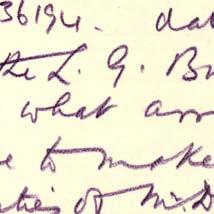 36194. dat
the L. G. B
what arr
e to make
ties of Mr. D